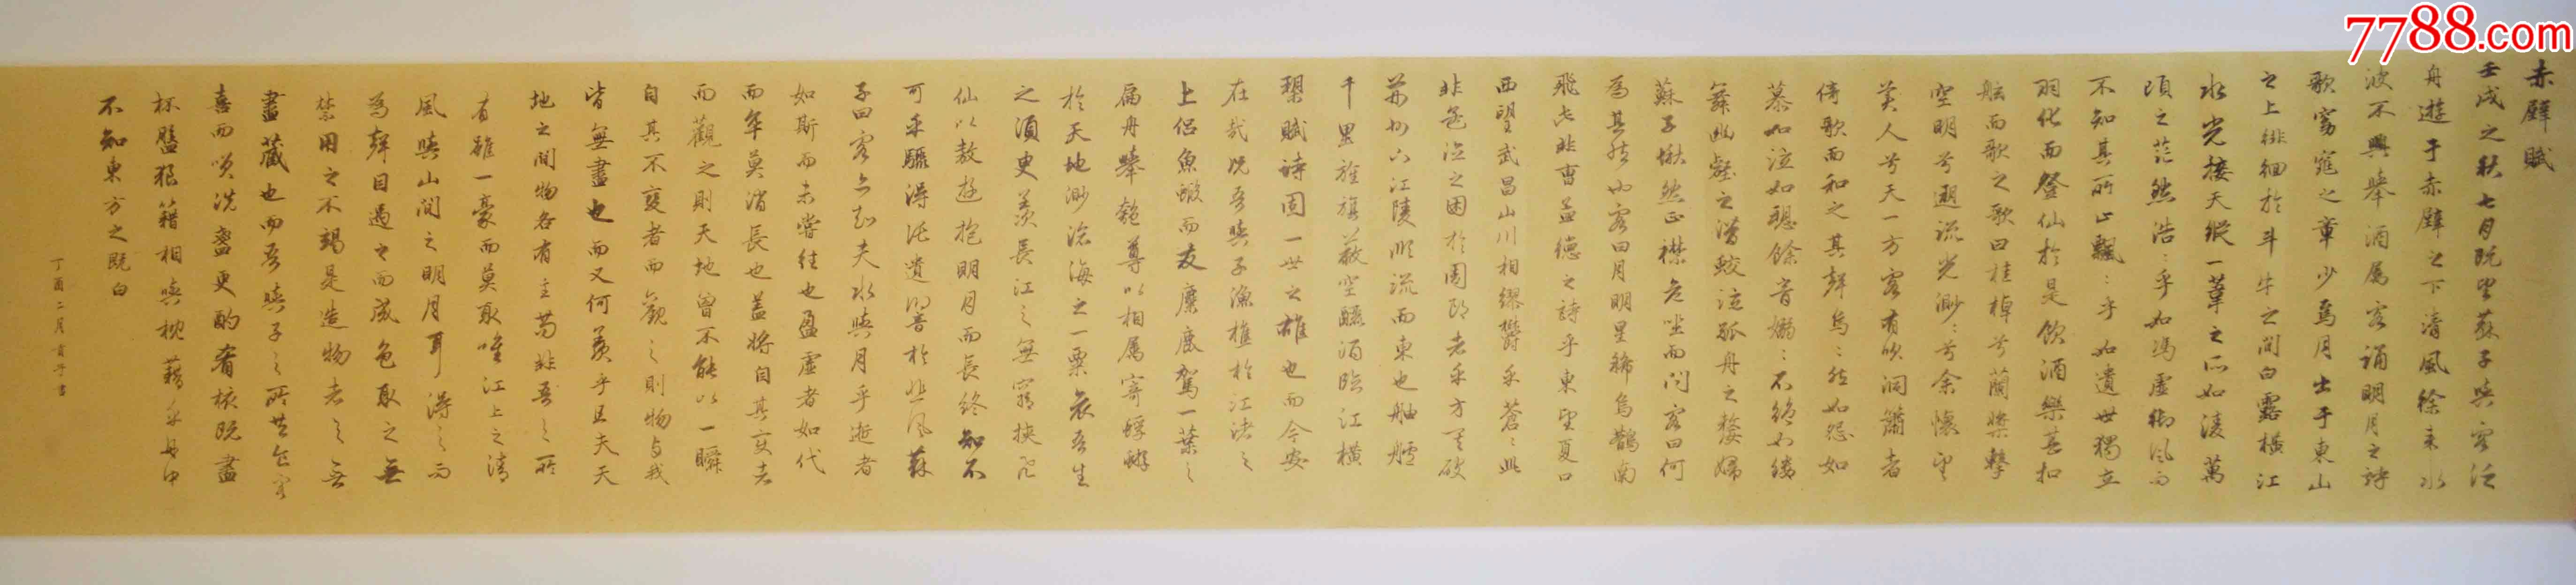 7788.com
赤壁賦
壬戌之秋七月既望蘇子與客泛
舟遊于赤壁之下清風徐来水
波不興舉酒属客誦明月之詩
歌窈窕之章少焉月出于東山
之上徘徊於斗牛之間白露橫江
水光接天縱一葦之所如淩萬
頃之茫然浩:乎如馮虛御風而
不知其所止飄:乎如遺世獨立
羽化而登仙於是飲酒樂甚扣
舷而歌之歌曰桂棹兮蘭槳擊
空明兮遡流光渺:兮余懷望
美人兮天一方客有吹洞簫者
倚歌而和之其聲烏:然如怨如
慕如泣如聽餘音嫋:不絕如縷
舞幽壑之潛蛟泣孤舟之嫠婦
蘇子愀然正襟危坐而问客曰何
為其然也客曰月明星稀烏鵲南
飛此非曹孟德之詩乎東望夏口
西望武昌山川相繆鬱乎蒼:此
非孟德之困於周郎者乎方其破
荊州下江陵順流而東也舳艫
千里旌旗蔽空釃酒臨江橫
槊賦詩固一世之雄也而今安
在哉况吾與子漁樵於江渚之
上侶魚蝦而友麋鹿駕一葉之
扁舟舉匏尊以相属寄蜉蝣
於天地渺滄海之一粟哀吾生
之須臾羨長江之無窮挾飛
仙以敖遊抱明月而長終知不
可乎驟得託遺響於悲風蘇
子曰客亦知夫水與月乎逝者
如斯而未嘗往也盈虛者如代
而卒莫消長也蓋將自其變者
而觀之則天地曾不能以一瞬
自其不變者而觀之則物与我
皆無盡也而又何羨乎且夫天
地之間物各有主苟非吾之所
有雖一豪而莫取唯江上之清
風與山間之明月耳得之而
為聲目遇之而成色取之無
禁用之不竭是造物者之無
盡藏也而吾與子之所共食客
喜而笑洗盞更酌肴核既盡
杯盤狼籍相與枕藉乎舟中
不知東方之既白
丁酉二月
書